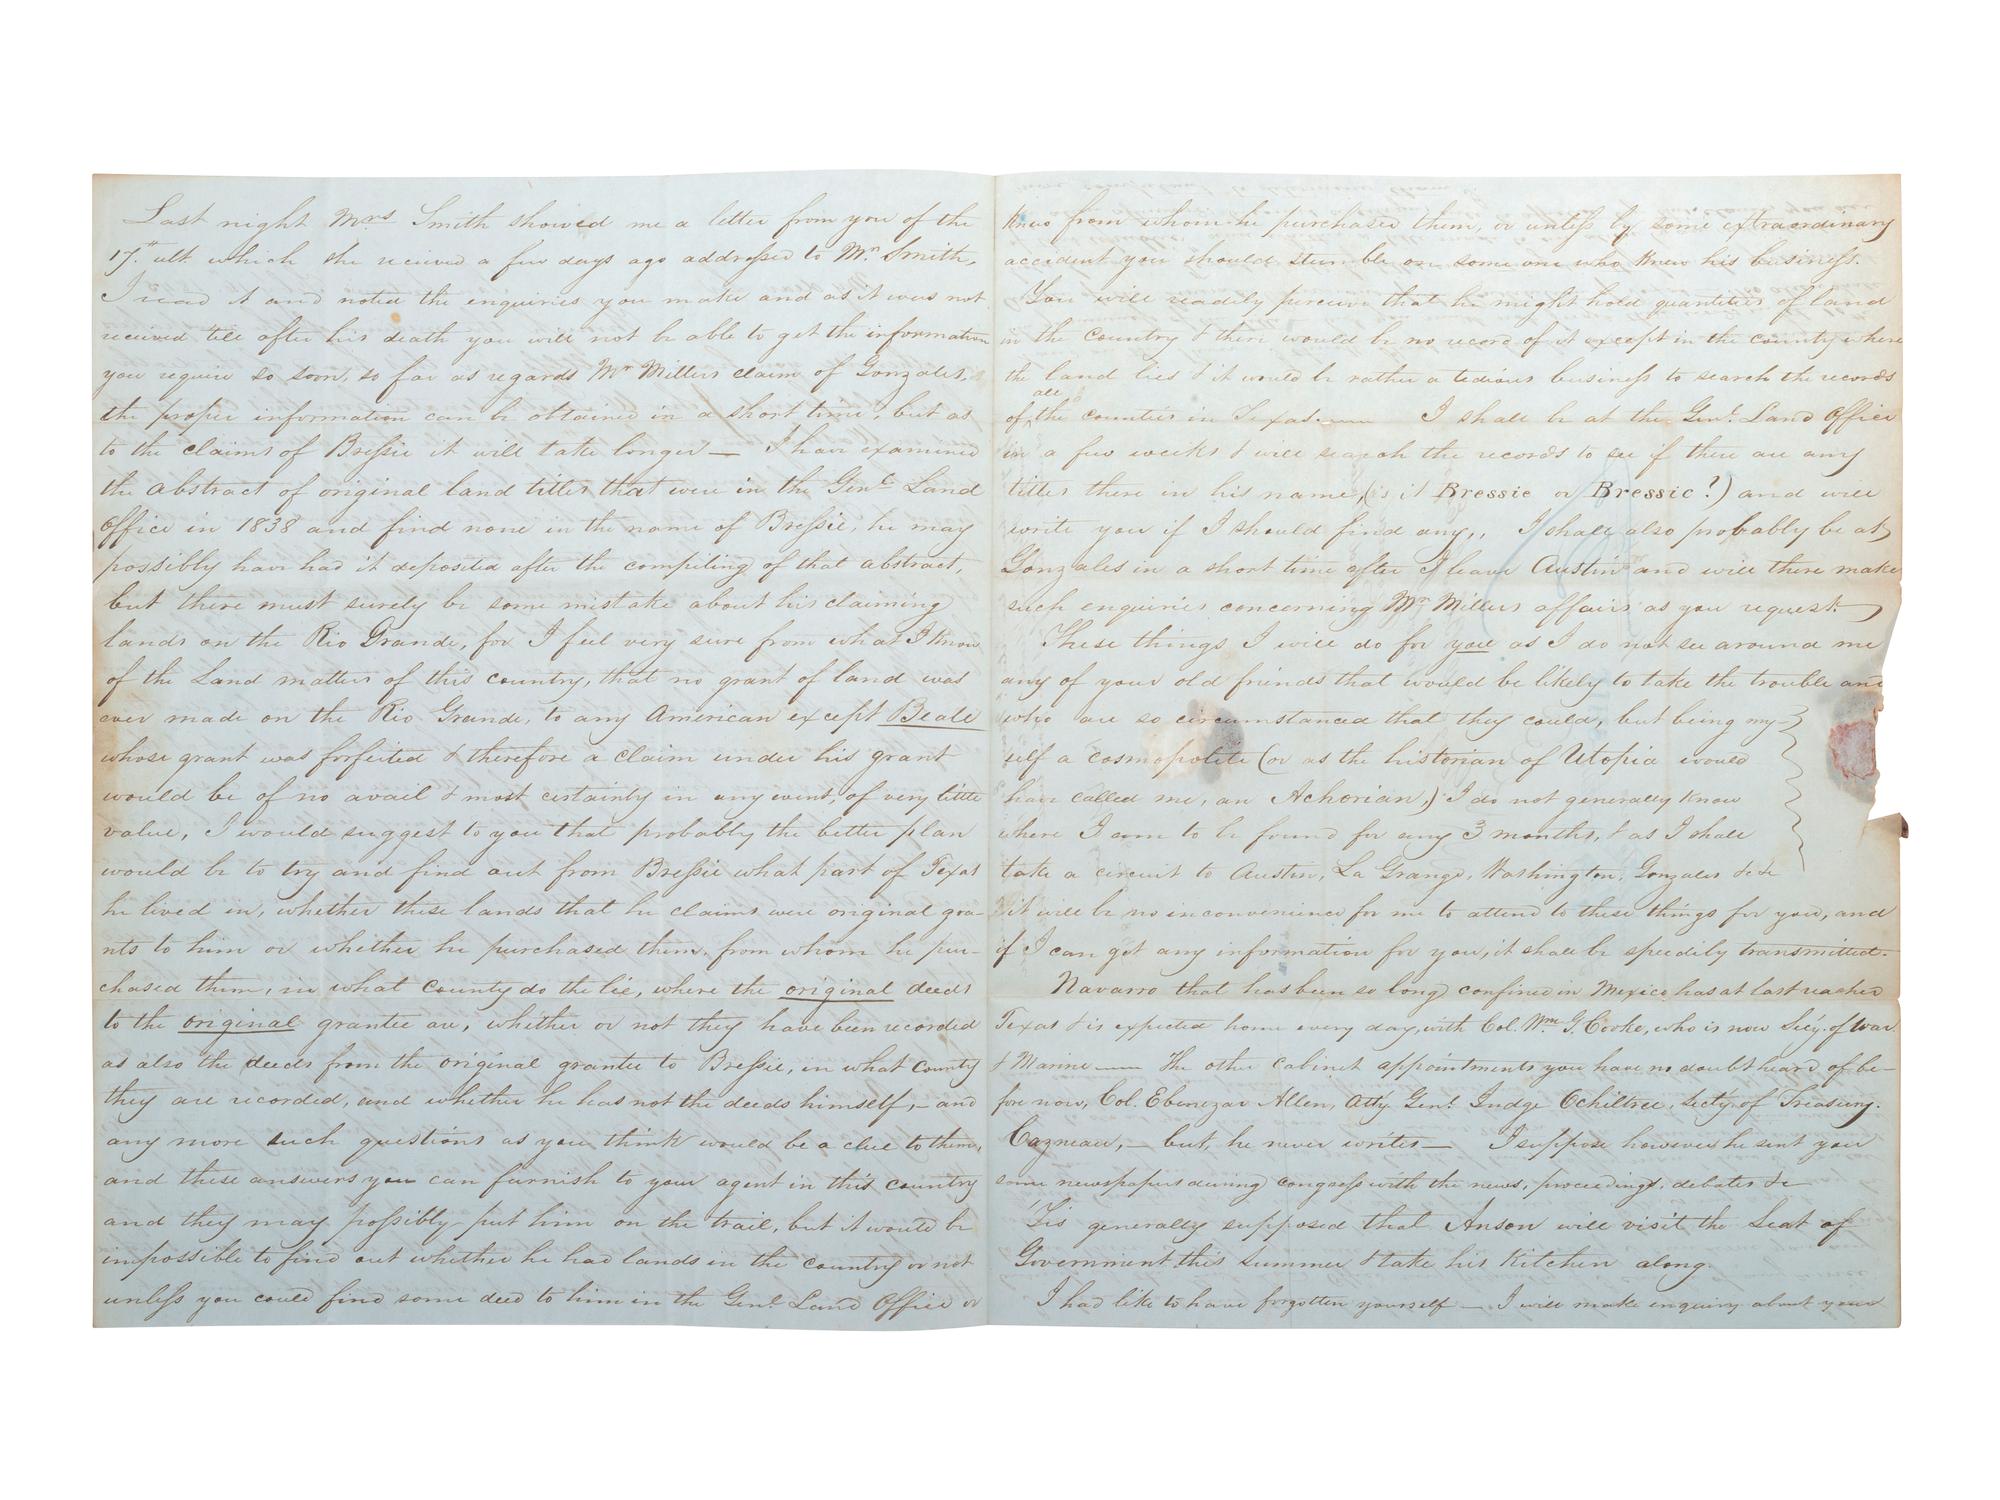 Last night Mrs Smith showed me a letter from you of the
17th ult. which she received a few days ago addressed to Mr Smith,
I read it and noted the enquiries you make and as it was not
received till after his death you will not be able to get the information
you require so soon, so far as regards Mr Millers claim of Gonzales,
the proper information can be obtained in a short time, but as
to the claims of Bressie it will take longer — I have examined
the abstract of original land titles that were in the Genl Land
Office in 1838 and find none in the name of Bressie, he may
possibly have had it deposited after the compiling of that abstract,
but there must surely be some mistake about his claiming
lands on the Rio Grande, for I feel very sure from what I know
of the Land matters of this country, that no grant of land was
ever made on the Rio Grande, to any American except Beale
whose grant was forfeited & therefore a claim under his grant
would be of no avail & most certainly in any event, of very little
value, I would suggest to you that probably the better plan
would be to try and find out from Bressie what part of Texas
he lived in, whether these lands that he claims were original gra-
nts to him or whether he purchased them, from whom he pur-
chased them, in what County do the lie, where the original deeds
to the original grantee are, whether or not they have been recorded
as also the deeds from the original grantee to Bressie, in what county
they are recorded, and whether he has not the deeds himself, — and
any more such questions as you think would be a clue to them,
and these answers you can furnish to your agent in this country
and they may possibly put him on the trail, but it would be
impossible to find out whether he had lands in the country or not
unless you could find some deed to him in the Genl. Land Office or
Knew from whom he purchased them, or unless by some extraordinary
accident you should stumble on some one who knew his business.
You will readily perceive that he might hold quantities of land
in the Country & there would be no record of it except in the county where
the land lies & it would be rather a tedious business to search the records
of all the counties in Texas. — I shall be at the Genl. Land Office
in a few weeks & will search the records to see if there are any
titles there in his name, (is it Bressie or Bressic?) and will
write you if I should find any,, I shall also probably be at
Gonzales in a short time after I leave Austin and will there make
such enquiries concerning Mr Millers affairs as you request.
These things I will do for you as I do not see around me
any of your old friends that would be likely to take the trouble and
who are so circumstanced that they could, but being my-
self a cosmopolite (or as the historian of Utopia would
have called me, an Achorian,) I do not generally know
where I am to be found for any 3 months, & as I shall
take a circuit to Austin, La Grange, Washington, Gonzales &c &c
it will be no inconvenience for me to attend to these things for you, and
if I can get any information for you, it shall be speedily transmitted.
Navarro that has been so long confined in Mexico has at last reached
Texas & is expected home every day, with Col. Wm G. Cooke, who is now Secy. of War
& Marine — The other cabinet appointments you have no doubt heard of be-
fore now, Col. Ebenezar Allen, Atty. Genl. Judge Ochiltree, Secty. of Treasury.
Cazneau, — but, he never writes — I suppose however he sent you
some newspapers during congress with the news, proceedings, debates &c
'Tis generally supposed that Anson will visit the Seat of
Government this summer & take his Kitchen along.
I had like to have forgotten yourself — I will make enquiry about your